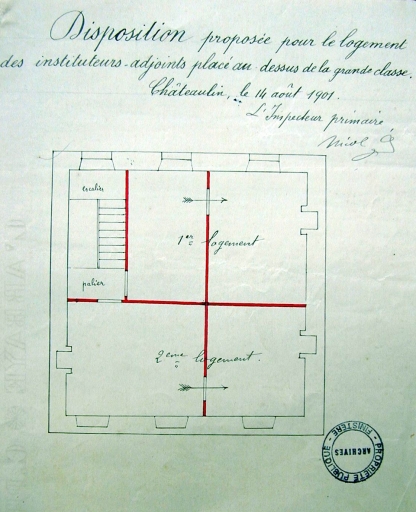 Disposition proposée pour le logement
des instituteurs-adjoints placé au-dessus de la grande classe.
Châteaulin, le 14 août 1901.
L'Inspecteur primaire
escalier
1er logement
palier
2eme logement.
PROPRIETE PUBLIQUE - FINISTERE -
ARCHIVES